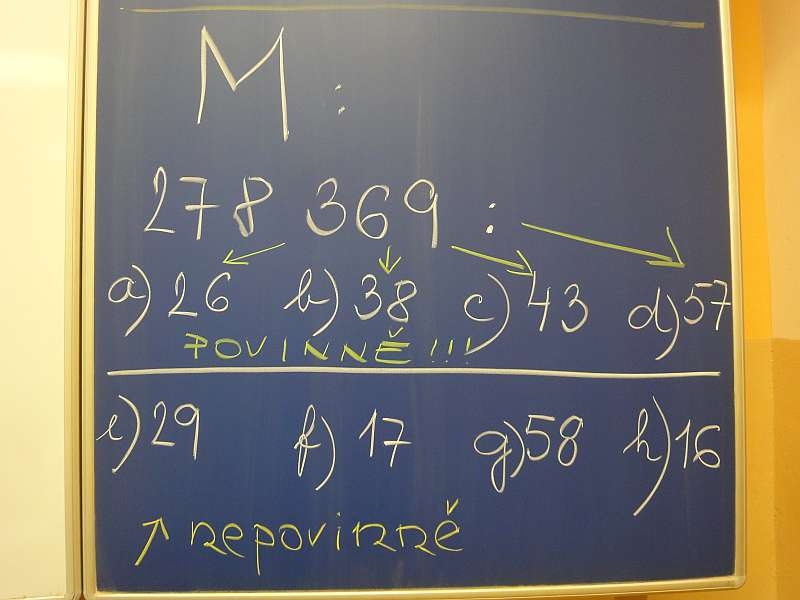 M:
278 369 :
a) 26 b) 38 c) 43 d) 57
POVINNĚ!!!
e) 29 f) 17 g) 58 h) 16
↗ nepovinně